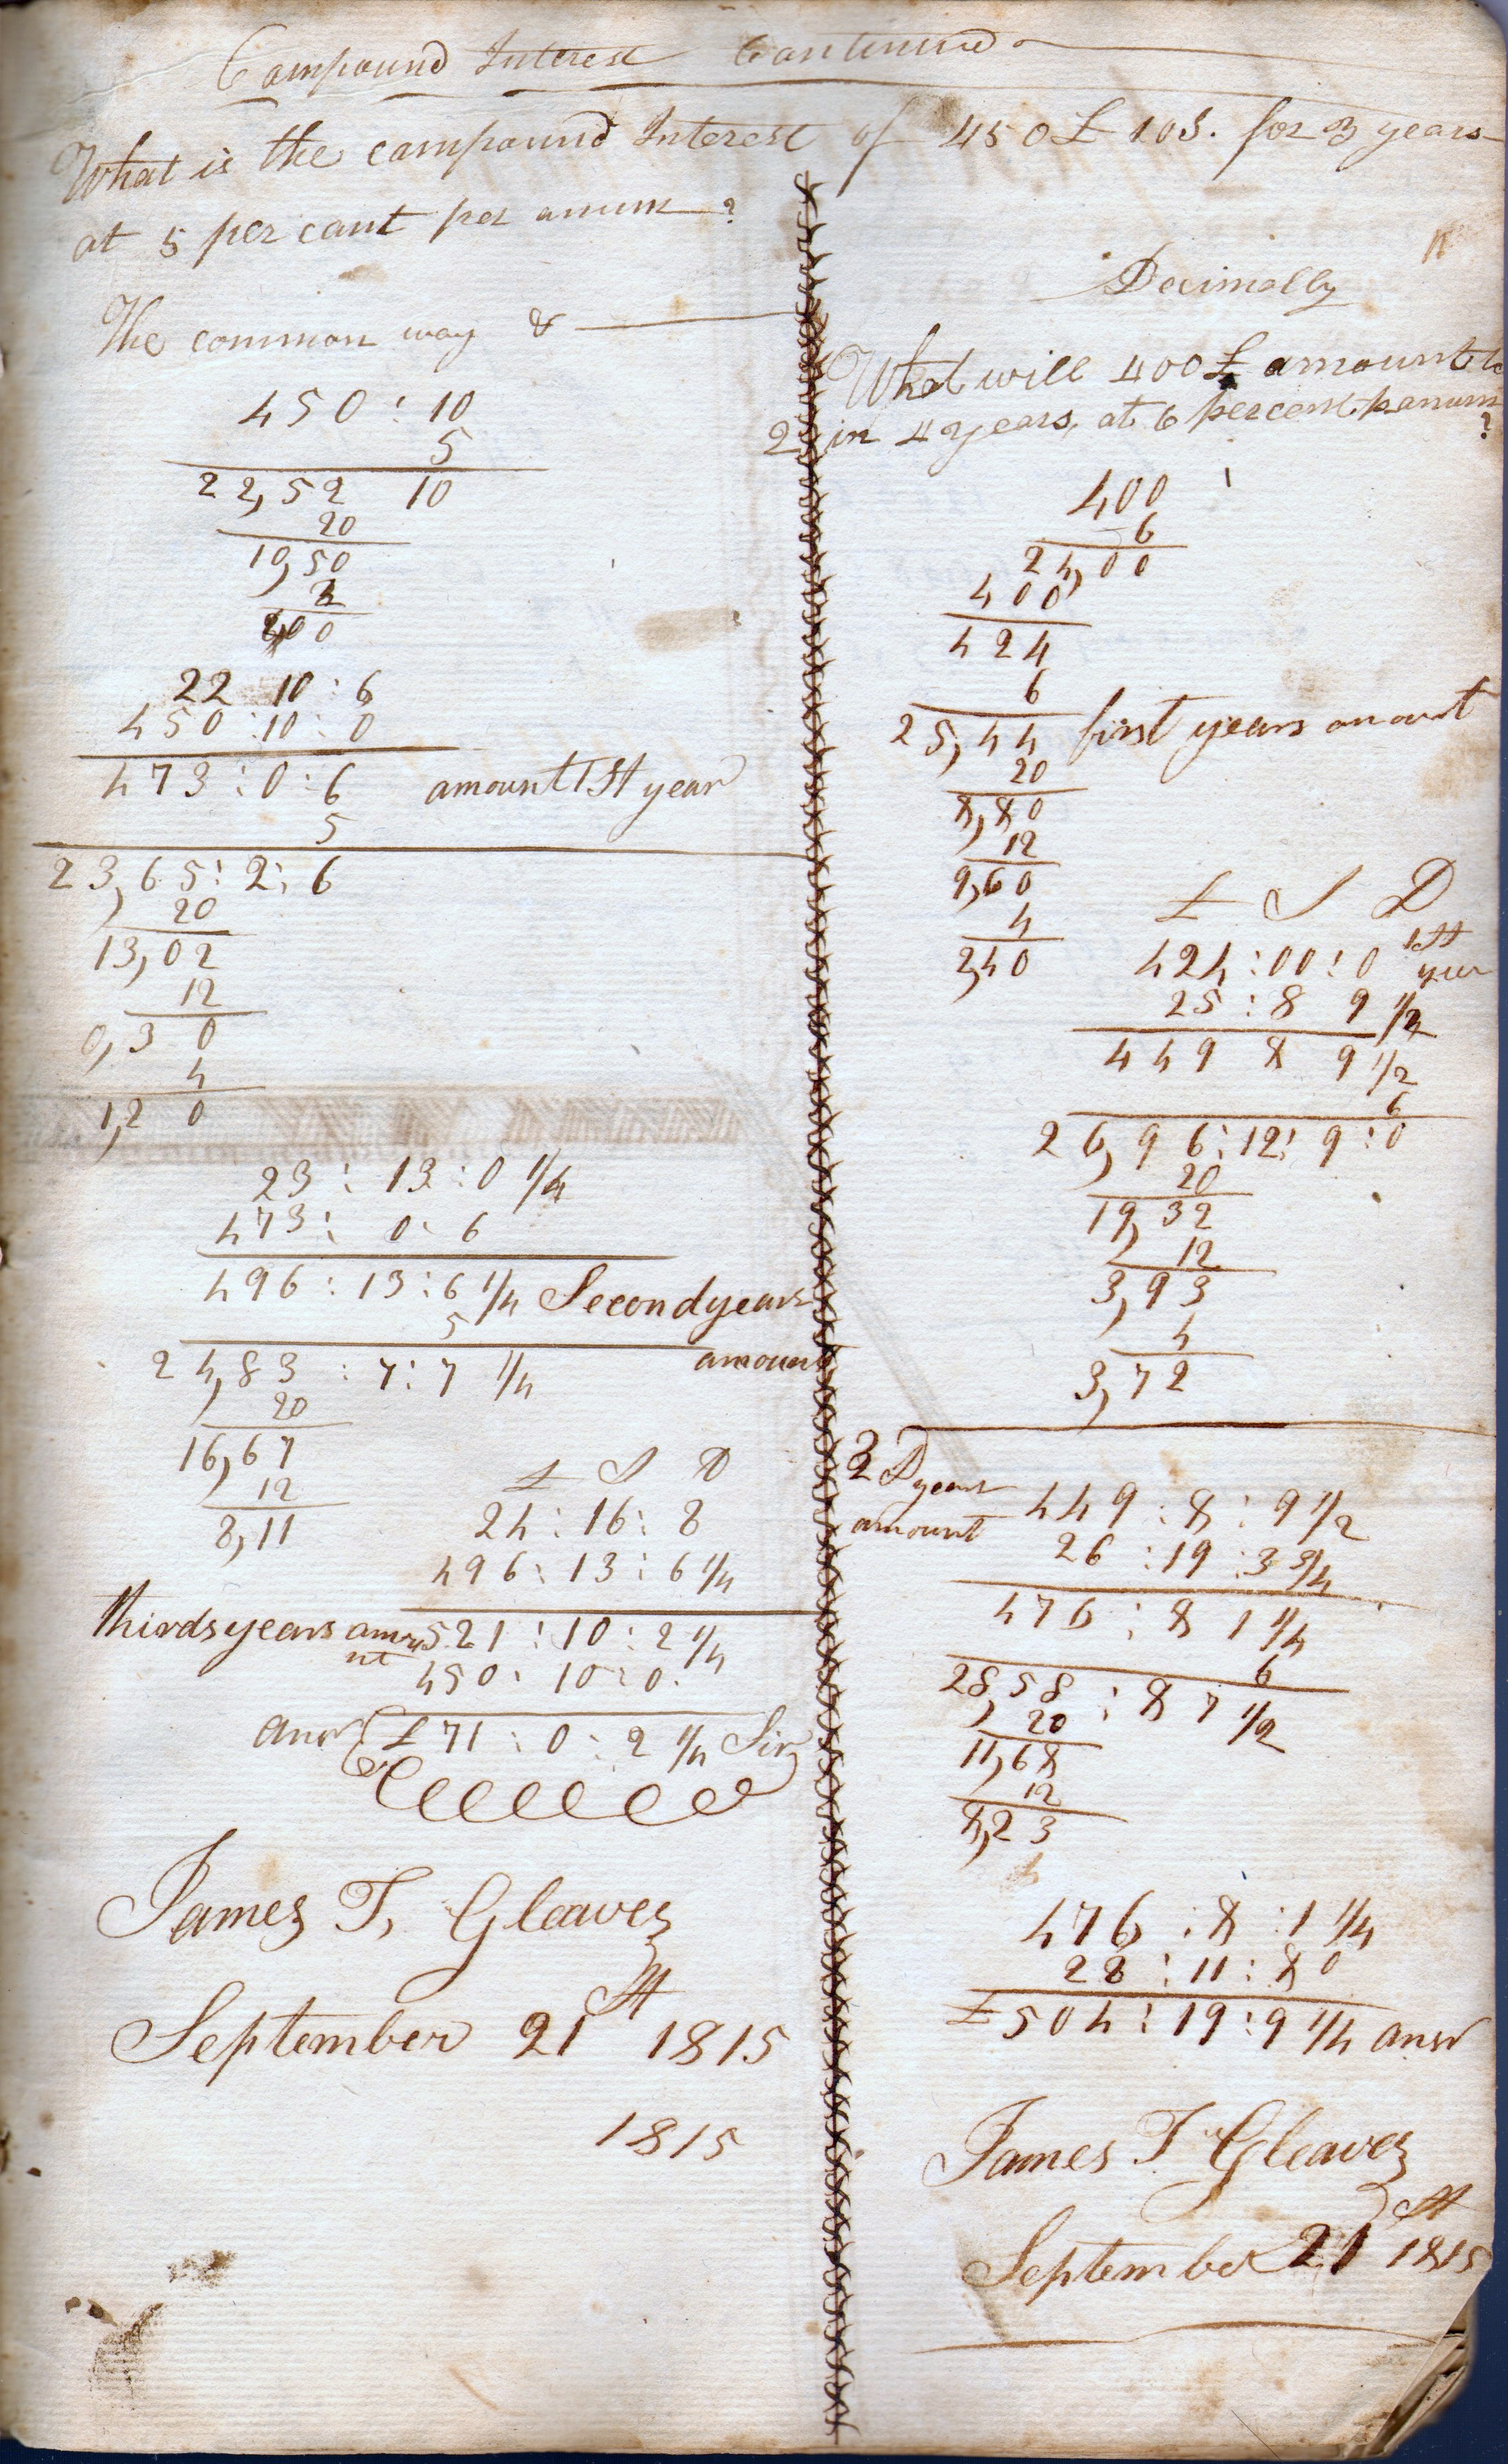 Compound Interest Continued
What is the compound Interest of 450£ 10S. for 3 years
at 5 per cant per anum?
The common way &
450 : 10
5
22,52 10
20
10,50
00
22 10 : 6
450 : 10 : 0
473 : 0 : 6 amount 1st year
5
23,65 : 2 : 6
20
13,02
12
0,3 0
4
1,2 0
23 : 13 : 0 1/4
473 : 0 : 6
496 : 13 : 6 1/4 Second years
5
amount
24,83 : 7 : 7 1/4
20
16,67
12
8,11
£ S D
24 : 16 : 8
496 : 13 : 6 1/4
thirds years amou 521 : 10 : 2 1/4
nt
450 : 10 : 0
answ £71 : 0 : 2 1/4 Sir
James T, Gleaves
September 21st 1815
1815
Decimally
What will 400£ amount to
2 in 4 years, at 6 per cent p anum
?
400
6
24,00
400
424
6
25,44 first years amount
20
8,80
12
9,60
4
2,40
£ S D
424 : 00 : 0 1st
year
25 : 8 9 1/2
449 8 9 1/2
6
26,96 : 12 : 9 : 0
20
19,32
12
3,93
4
3,72
2D year
amount
449 : 8 : 9 1/2
26 : 19 : 3 3/4
476 : 8 1 1/4
6
28,58 : 8 7 1/2
20
11,68
12
8,23
476 : 8 : 1 1/4
28 : 11 : 8 0
£504 : 19 : 9 1/4 answ
James T Gleaves
September 21st 1815